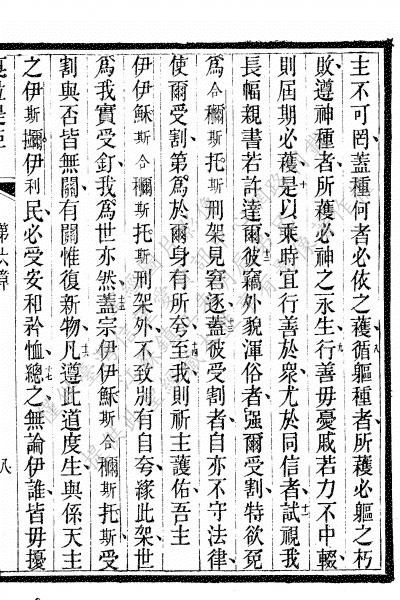 主不可罔蓋種何者必依之穫循軀種者所穫必軀之朽
敗遵神種者所穫必神之永生行善毋憂戚若力不中輟
則屆期必穫是以乘時宜行善於衆尤於同信者試視我
長幅親書若許達爾彼竊外貌渾俗者强爾受割特欲免
為合穪斯托斯刑架見窘逐蓋彼受割者自亦不守法律
使爾受割第為於爾身有所夸至我則祈主護佑吾主
伊伊穌斯合穪斯托斯刑架外不致別有自夸緣此架世
為我實受釘我為世亦然蓋宗伊伊穌斯合穪斯托斯受
割與否皆無關有關惟復新物凡遵此道度生與係天主
之伊斯擳伊利民必受安和矜恤總之無論伊誰皆毋擾
第六章
八